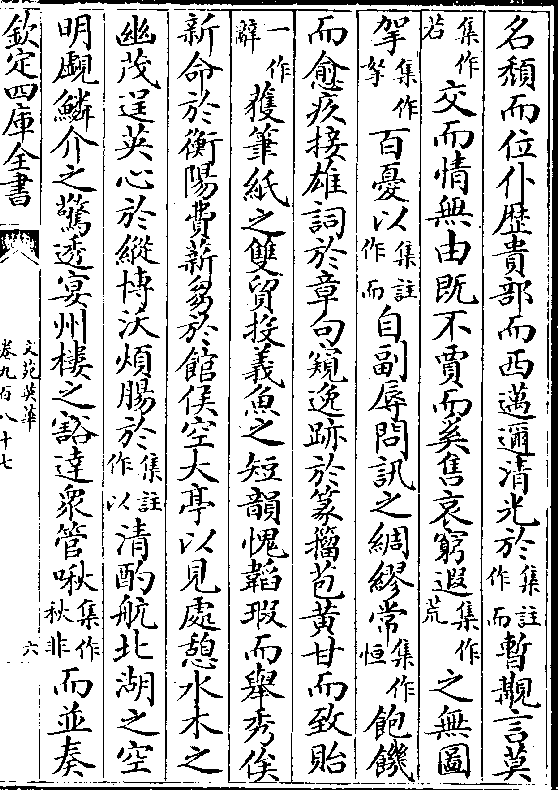 名頹而位仆歷貴部而西邁邇清光於集註作而暫覯言莫
若集作交而情無由既不賈而奚售哀窮遐集作荒之無圖
挐集作拏百憂以集註作而自副辱問訊之綢繆常集作恒飽饑
而愈疾接雄詞於章句窺逸跡於篆籀苞黃甘而致貽
一作辭獲筆紙之雙貿投義魚之短韻愧韜瑕而舉秀俟
新命於衡陽費薪芻於館候空大亭以見處憩水木之
幽茂逞英心於縱博沃煩腸於集註作以清酌航北湖之空
明覷鱗介之驚透宴州樓之豁達衆管啾集作秋非而並奏
欽定四庫全書
文苑英華
卷九百八十七
六